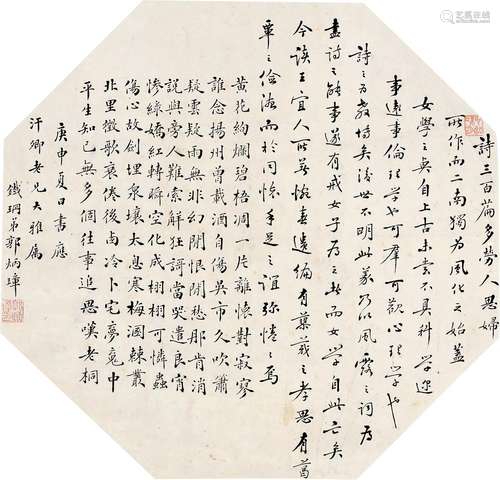 詩三百篇多勞人思婦
所作而二南獨為風化之始蓋
女學之興自上古未嘗不具科學逆
事遠事倫理學也可群可欲心理學也
詩之為教博矣後世不明此義乃以風露之詞為
盡詩之能事遂有戒女子為之者而女學自此亡矣
今讀王宜人所著恢
遺編有蘩
之孝思有葛
覃之儉
而於同懷手足之誼弥惓惓焉
黃花絢爛碧梧凋一片離懷對寂寥
誰念揚州曾載酒自傷吳市久吹簫
疑雲疑雨無非幻閒恨閒愁那肯消
說與旁人難索解狂謌當哭遣良宵
慘綠嬌紅轉瞬空化成栩栩可憐蟲
傷心故劍埋泉壤太息寒梅涸棘叢
北里徵歌哀倦後卣冷卜宅夢魂中
平生知己無多個往事追思嘆老桐
庚申夏日書應
汗卿老兄大雅屬
鐵珊弟郭炳璋